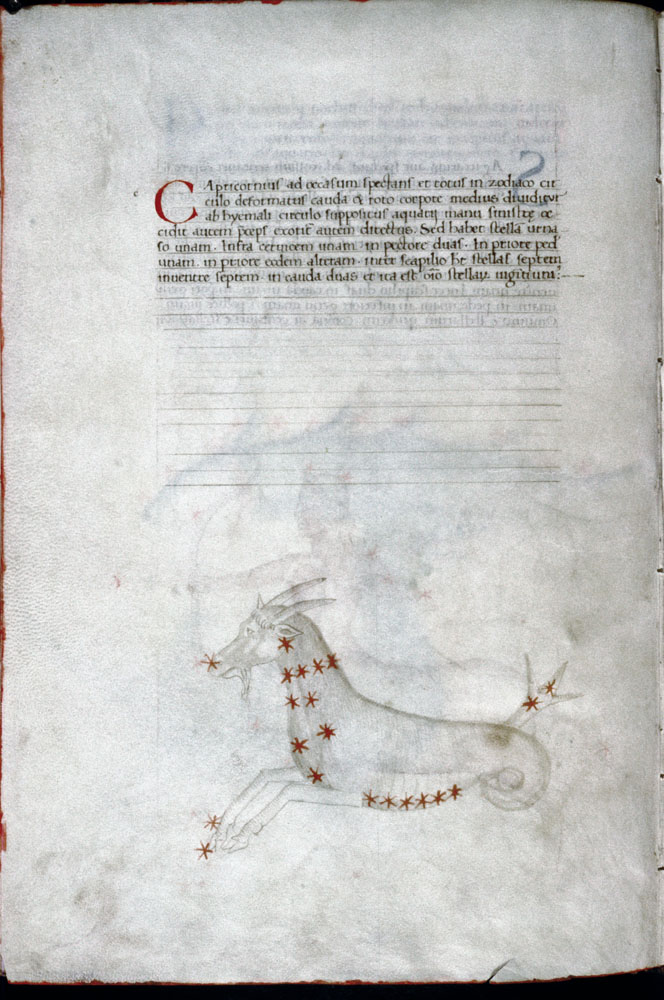 CApricornius ad occasum spectans et totus in zodiaco cir
culo deformatus cauda & toto corpore medius diuiditur
ab hyemali circulo suppositus aquarij manu sinistre oc
cidit autem preceps exorit autem directus. Sed habet stella in na
so unam. Infra ceruicem unam. in pectore duas. In priore pede
unam. in priore eodem alteram. inter scapilio ht stellas septem
inuentre septem. in cauda duas et ita est oīo stellaꝝ uigitiuni.